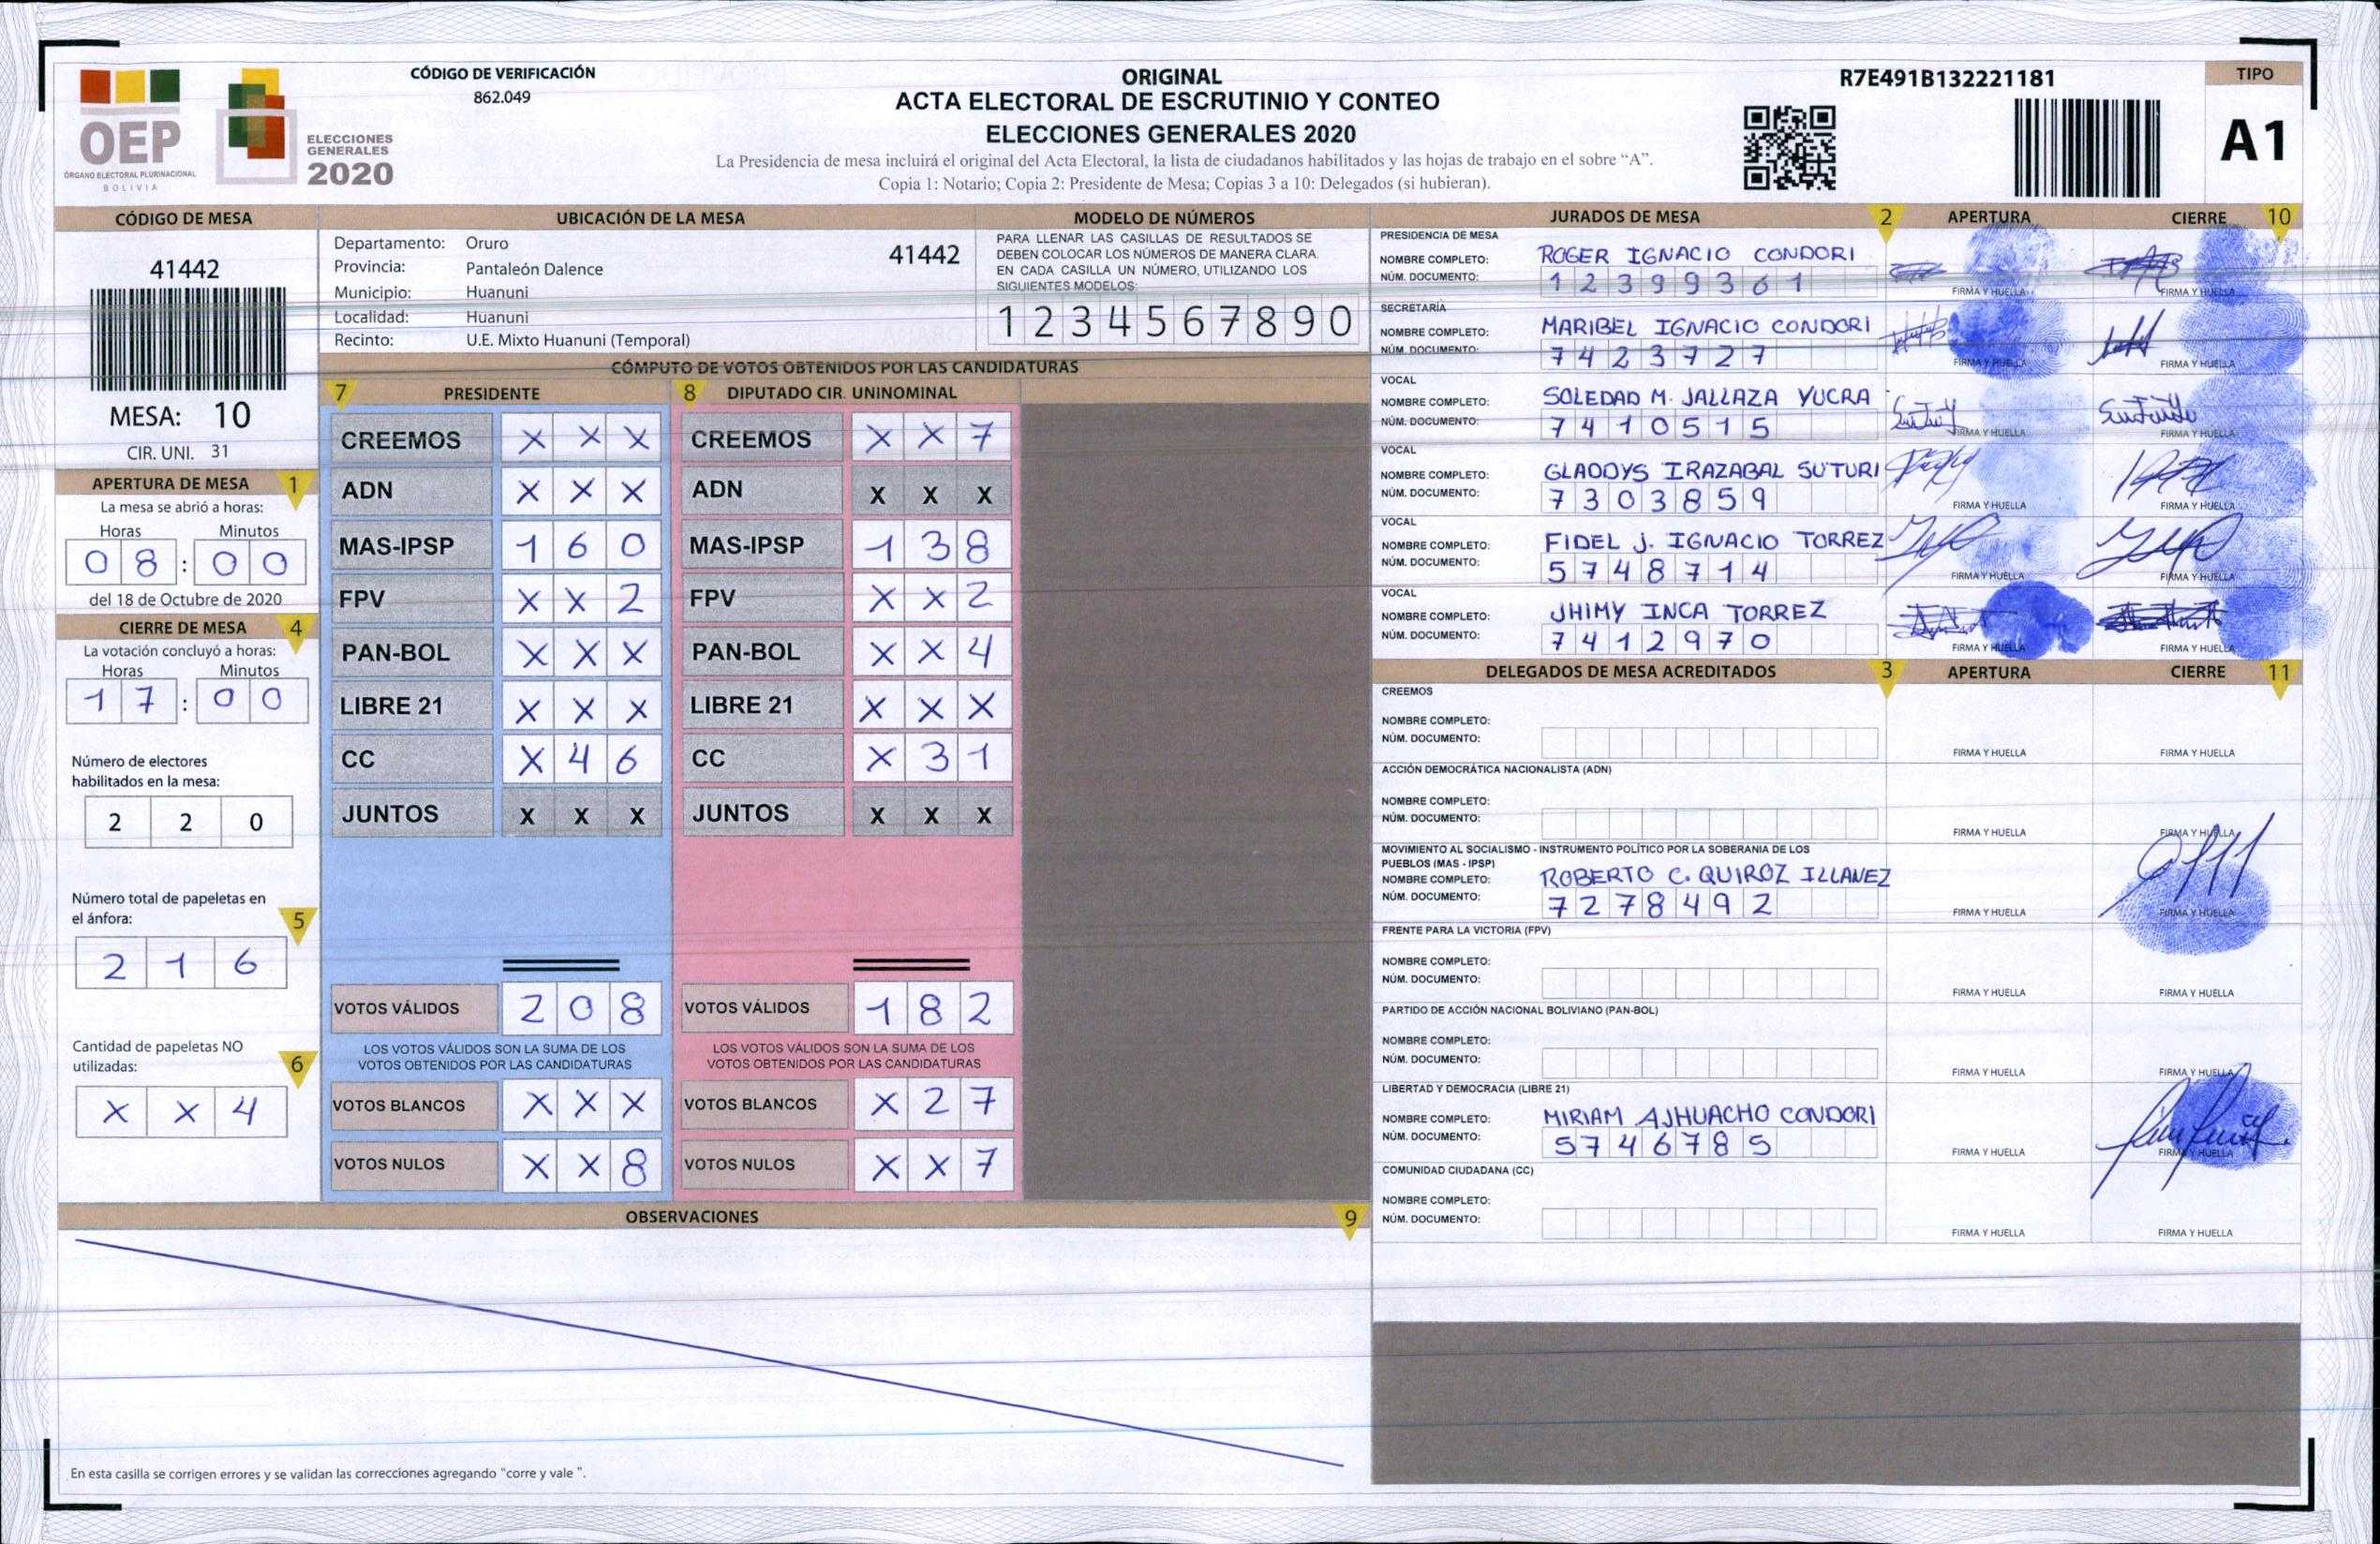 OEP
ÓRGANO ELECTORAL PLURINACIONAL
BOLIVIA
ELECCIONES
GENERALES
2020
CÓDIGO DE VERIFICACIÓN
862.049
ORIGINAL
ACTA ELECTORAL DE ESCRUTINIO Y CONTEO
ELECCIONES GENERALES 2020
La Presidencia de mesa incluirá el original del Acta Electoral, la lista de ciudadanos habilitados y las hojas de trabajo en el sobre “A”.
Copia 1: Notario; Copia 2: Presidente de Mesa; Copias 3 a 10: Delegados (si hubieran).
R7E491B132221181
TIPO
A1
CÓDIGO DE MESA
41442
MESA: 10
CIR. UNI. 31
APERTURA DE MESA 1
La mesa se abrió a horas:
Horas Minutos
0 8 : 0 0
del 18 de Octubre de 2020
CIERRE DE MESA 4
La votación concluyó a horas:
Horas Minutos
1 7 : 0 0
Número de electores
habilitados en la mesa:
2 2 0
Número total de papeletas en
el ánfora: 5
2 1 6
Cantidad de papeletas NO
utilizadas: 6
X X 4
UBICACIÓN DE LA MESA
Departamento: Oruro 41442
Provincia: Pantaleón Dalence
Municipio: Huanuni
Localidad: Huanuni
Recinto: U.E. Mixto Huanuni (Temporal)
MODELO DE NÚMEROS
PARA LLENAR LAS CASILLAS DE RESULTADOS SE
DEBEN COLOCAR LOS NÚMEROS DE MANERA CLARA.
EN CADA CASILLA UN NÚMERO, UTILIZANDO LOS
SIGUIENTES MODELOS:
1 2 3 4 5 6 7 8 9 0
CÓMPUTO DE VOTOS OBTENIDOS POR LAS CANDIDATURAS
7 PRESIDENTE 8 DIPUTADO CIR. UNINOMINAL
CREEMOS X X X CREEMOS X X 7
ADN X X X ADN X X X
MAS-IPSP 1 6 0 MAS-IPSP 1 3 8
FPV X X 2 FPV X X 2
PAN-BOL X X X PAN-BOL X X 4
LIBRE 21 X X X LIBRE 21 X X X
CC X 4 6 CC X 3 1
JUNTOS X X X JUNTOS X X X
VOTOS VÁLIDOS 2 0 8 VOTOS VÁLIDOS 1 8 2
LOS VOTOS VÁLIDOS SON LA SUMA DE LOS LOS VOTOS VÁLIDOS SON LA SUMA DE LOS
VOTOS OBTENIDOS POR LAS CANDIDATURAS VOTOS OBTENIDOS POR LAS CANDIDATURAS
VOTOS BLANCOS X X X VOTOS BLANCOS X 2 7
VOTOS NULOS X X 8 VOTOS NULOS X X 7
OBSERVACIONES 9
En esta casilla se corrigen errores y se validan las correcciones agregando "corre y vale ".
JURADOS DE MESA 2 APERTURA CIERRE 10
PRESIDENCIA DE MESA
NOMBRE COMPLETO: ROGER IGNACIO CONDORI
NÚM. DOCUMENTO: 1 2 3 9 9 3 6 1
FIRMA Y HUELLA FIRMA Y HUELLA
SECRETARÍA
NOMBRE COMPLETO: MARIBEL IGNACIO CONDORI
NÚM. DOCUMENTO: 7 4 2 3 7 2 7
FIRMA Y HUELLA FIRMA Y HUELLA
VOCAL
NOMBRE COMPLETO: SOLEDAD M. JALLAZA YUCRA
NÚM. DOCUMENTO: 7 4 1 0 5 1 5
FIRMA Y HUELLA FIRMA Y HUELLA
VOCAL
NOMBRE COMPLETO: GLADDYS IRAZABAL SUTURI
NÚM. DOCUMENTO: 7 3 0 3 8 5 9
FIRMA Y HUELLA FIRMA Y HUELLA
VOCAL
NOMBRE COMPLETO: FIDEL J. IGNACIO TORREZ
NÚM. DOCUMENTO: 5 7 4 8 7 1 4
FIRMA Y HUELLA FIRMA Y HUELLA
VOCAL
NOMBRE COMPLETO: JHIMY INCA TORREZ
NÚM. DOCUMENTO: 7 4 1 2 9 7 0
FIRMA Y HUELLA FIRMA Y HUELLA
DELEGADOS DE MESA ACREDITADOS 3 APERTURA CIERRE 11
CREEMOS
NOMBRE COMPLETO:
NÚM. DOCUMENTO:
FIRMA Y HUELLA FIRMA Y HUELLA
ACCIÓN DEMOCRÁTICA NACIONALISTA (ADN)
NOMBRE COMPLETO:
NÚM. DOCUMENTO:
FIRMA Y HUELLA FIRMA Y HUELLA
MOVIMIENTO AL SOCIALISMO - INSTRUMENTO POLÍTICO POR LA SOBERANIA DE LOS
PUEBLOS (MAS - IPSP)
NOMBRE COMPLETO: ROBERTO C. QUIROZ ILLANEZ
NÚM. DOCUMENTO: 7 2 7 8 4 9 2
FIRMA Y HUELLA FIRMA Y HUELLA
FRENTE PARA LA VICTORIA (FPV)
NOMBRE COMPLETO:
NÚM. DOCUMENTO:
FIRMA Y HUELLA FIRMA Y HUELLA
PARTIDO DE ACCIÓN NACIONAL BOLIVIANO (PAN-BOL)
NOMBRE COMPLETO:
NÚM. DOCUMENTO:
FIRMA Y HUELLA FIRMA Y HUELLA
LIBERTAD Y DEMOCRACIA (LIBRE 21)
NOMBRE COMPLETO: MIRIAM AJHUACHO CONDORI
NÚM. DOCUMENTO: 5 7 4 6 7 8 5
FIRMA Y HUELLA FIRMA Y HUELLA
COMUNIDAD CIUDADANA (CC)
NOMBRE COMPLETO:
NÚM. DOCUMENTO:
FIRMA Y HUELLA FIRMA Y HUELLA